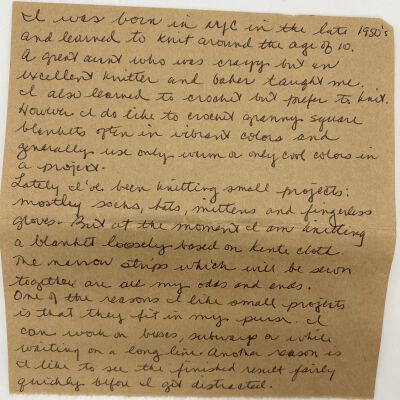 I was born in NYC in the late 1950's
and learned to knit around the age of 10.
A great aunt who was crazy but an
excellent knitter and baker taught me.
I also learned to crochet but prefer to knit.
However I do like to crochet granny square
blankets often in vibrant colors and
generally use only warm or only cool colors in
a project.
Lately I've been knitting small projects:
mostly socks, hats, mittens and fingerless
gloves. But at the moment I am knitting
a blanket loosely based on kente cloth.
The narrow strips which will be sewn
together are all my odds and ends.
One of the reasons I like small projects
is that they fit in my purse. I
can work on buses, subways or while
waiting on a long line. Another reason is
I like to see the finished result fairly
quickly before I get distracted.